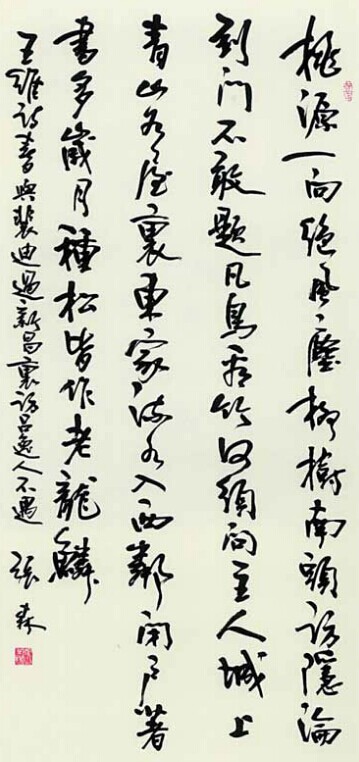 桃源一向絕風塵柳樹南頭訪隱淪
到門不敢題凡鳥看竹何須問主人城上
青山如屋裏東家流水入西鄰閉戶著
書多歲月種松皆作老龍鱗
王維詩春與裴迪過新昌裏訪呂逸人不遇 張森